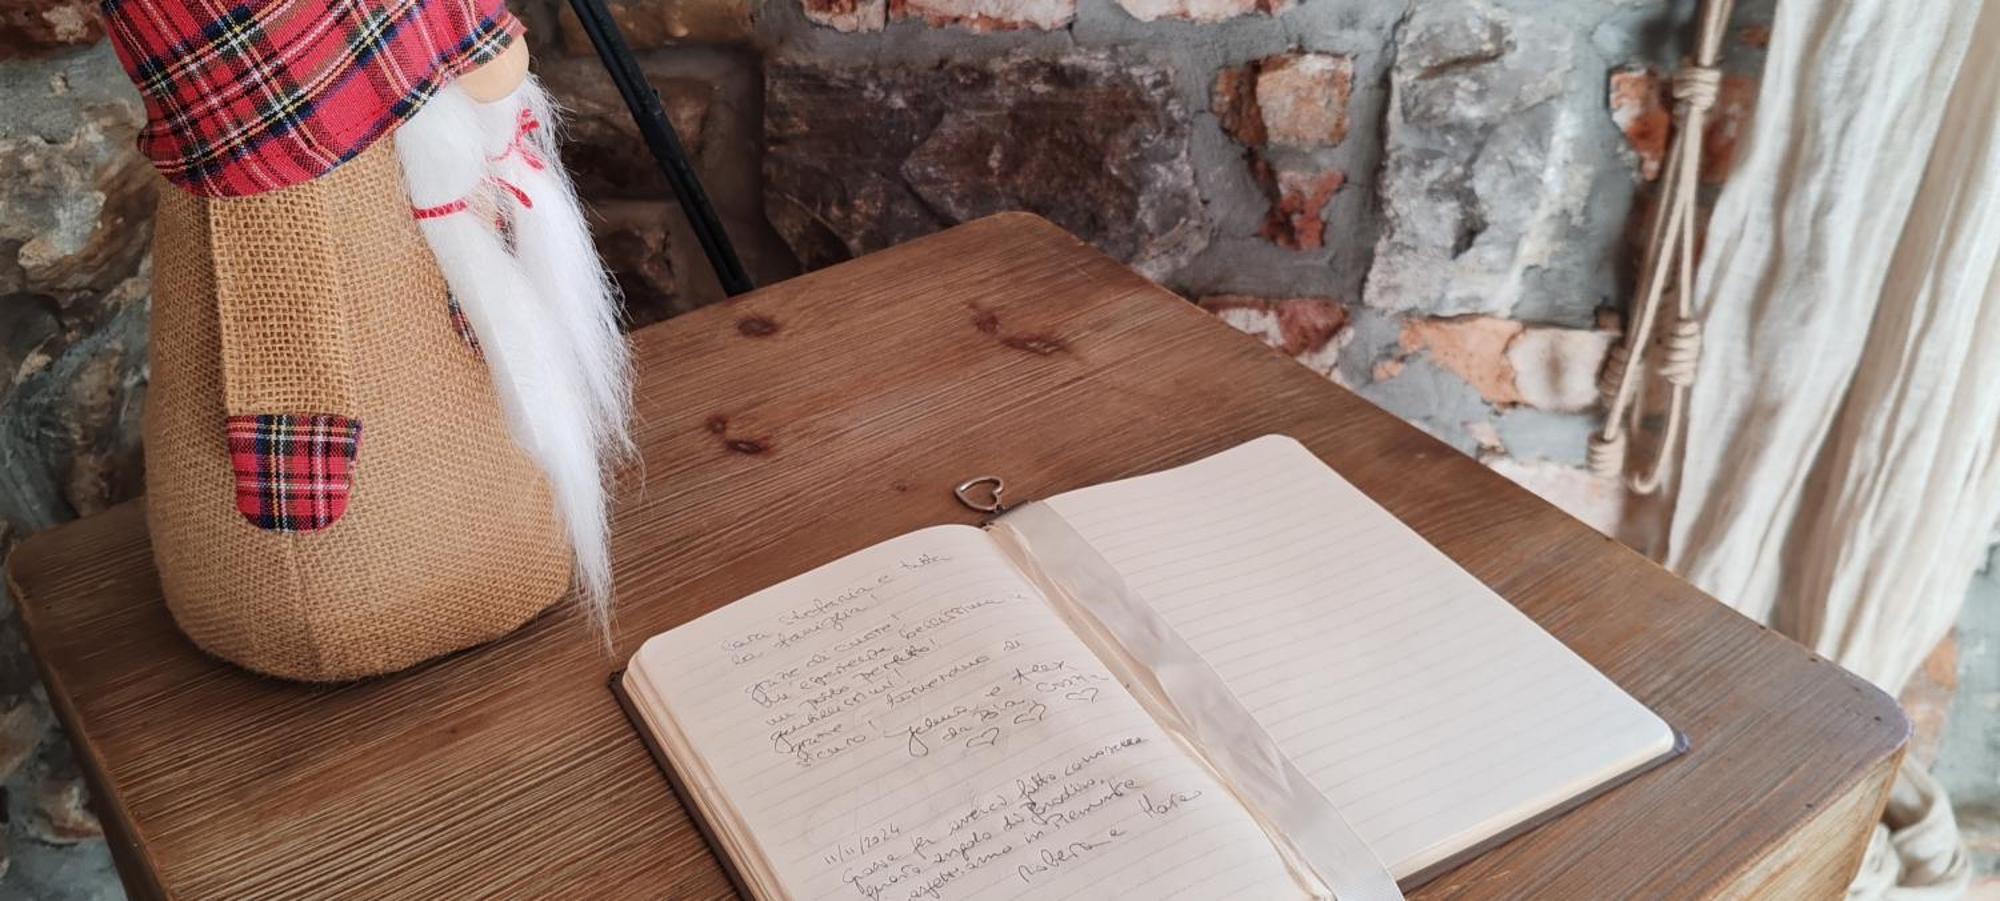 Cara Stefania e tutta
la famiglia!
grazie di cuore!
Un esperienza bellissima e
un posto perfetto!
gentilissimi!
grazie! Torneremo di
sicuro! Jelena e Alex
da Bia
11/11/2024
Grazie per averci fatto conoscere
questo angolo di Paradiso,
aspettiamo in Piemonte
Roberta e Marco